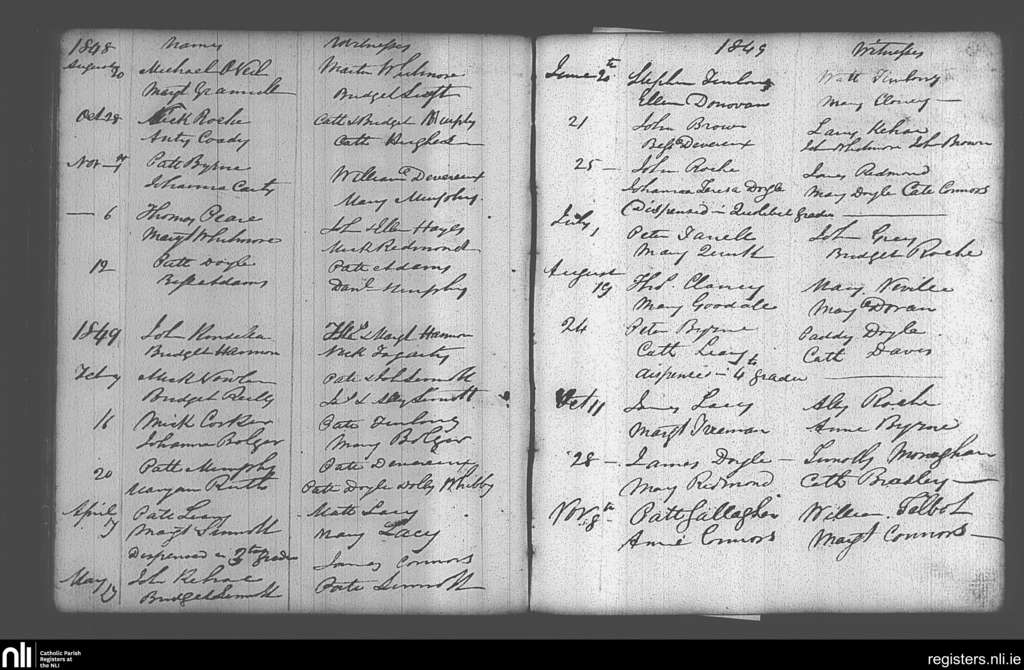 1848 Names Witnesses
August 20 Michael O'Neil Martin Whitmore
Margt Bridget Swift
Oct 28 Mick Roche Cath & Bridget Murphy
Anty Coady Cath Hughes
Nov Patt Byrne William Devereux
Johanna Mary Murphy
— 6 Thomas Peare Jh Ellen Hayes
Margt Whitmore Mick Redmond
12 Patt Doyle Pat Adams
Bess Adams Danl Murphy
1849 John Kinsela Ths & Margt Hannon
Bridget Hannon Nick Fogarty
Feby Mick Nowlan Pat & Sinnott
Bridget Reilly Sinnott
16 Mick Corker Pat Furlong
Johanna Bolger Mary Bolger
20 Patt Murphy Pat Devereux
Maryan Ruth Pat Doyle Dolly Whitty
April 17 Pat Leary Matt Lacy
Margt Sinnott Mary Lacy
Dispensed in 3 grade
May 17 John Kehoe James Connors
Bridget Sinnott Pat Sinnott
1849 Witnesses
June 20th Stephen Furlong Watt Furlong
Ellen Donovan Mary Cloney —
21 John Brown Lary Kehoe
Bess Devereux Jn Whitmore John Brown
25 — John Roche James Redmond
Johannah Teresa Doyle Mary Doyle Cate Connors
(Dispensed in grade —
July 1 Peter Farrell John Grey
Mary Quirk Bridget Roche
August 19 Ths. Clancy Mary Nevilee
Mary Goodale Mary Doran
24 Peter Byrne Paddy Doyle
Cath Leary Cath Davis
dispensed in 4th grade —
Oct 11 James Lacy Aly Roche
Margt Freeman Anne Byrne
28 — James Doyle — Timothy Monaghan
Mary Redmond Cath Bradley —
Nov. 8th Patt Gallagher William Talbot
Anne Connors Margt Connors —
nli Catholic Parish
Registers at
the NLI
registers.nli.ie